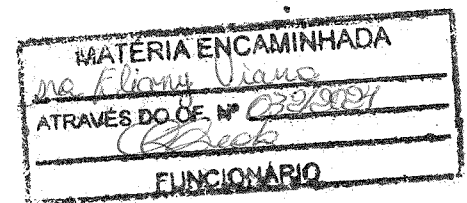 MATÉRIA ENCAMINHADA
Eliany Viana
ATRAVÉS DO OF. Nº 032/2021
FUNCIONÁRIO